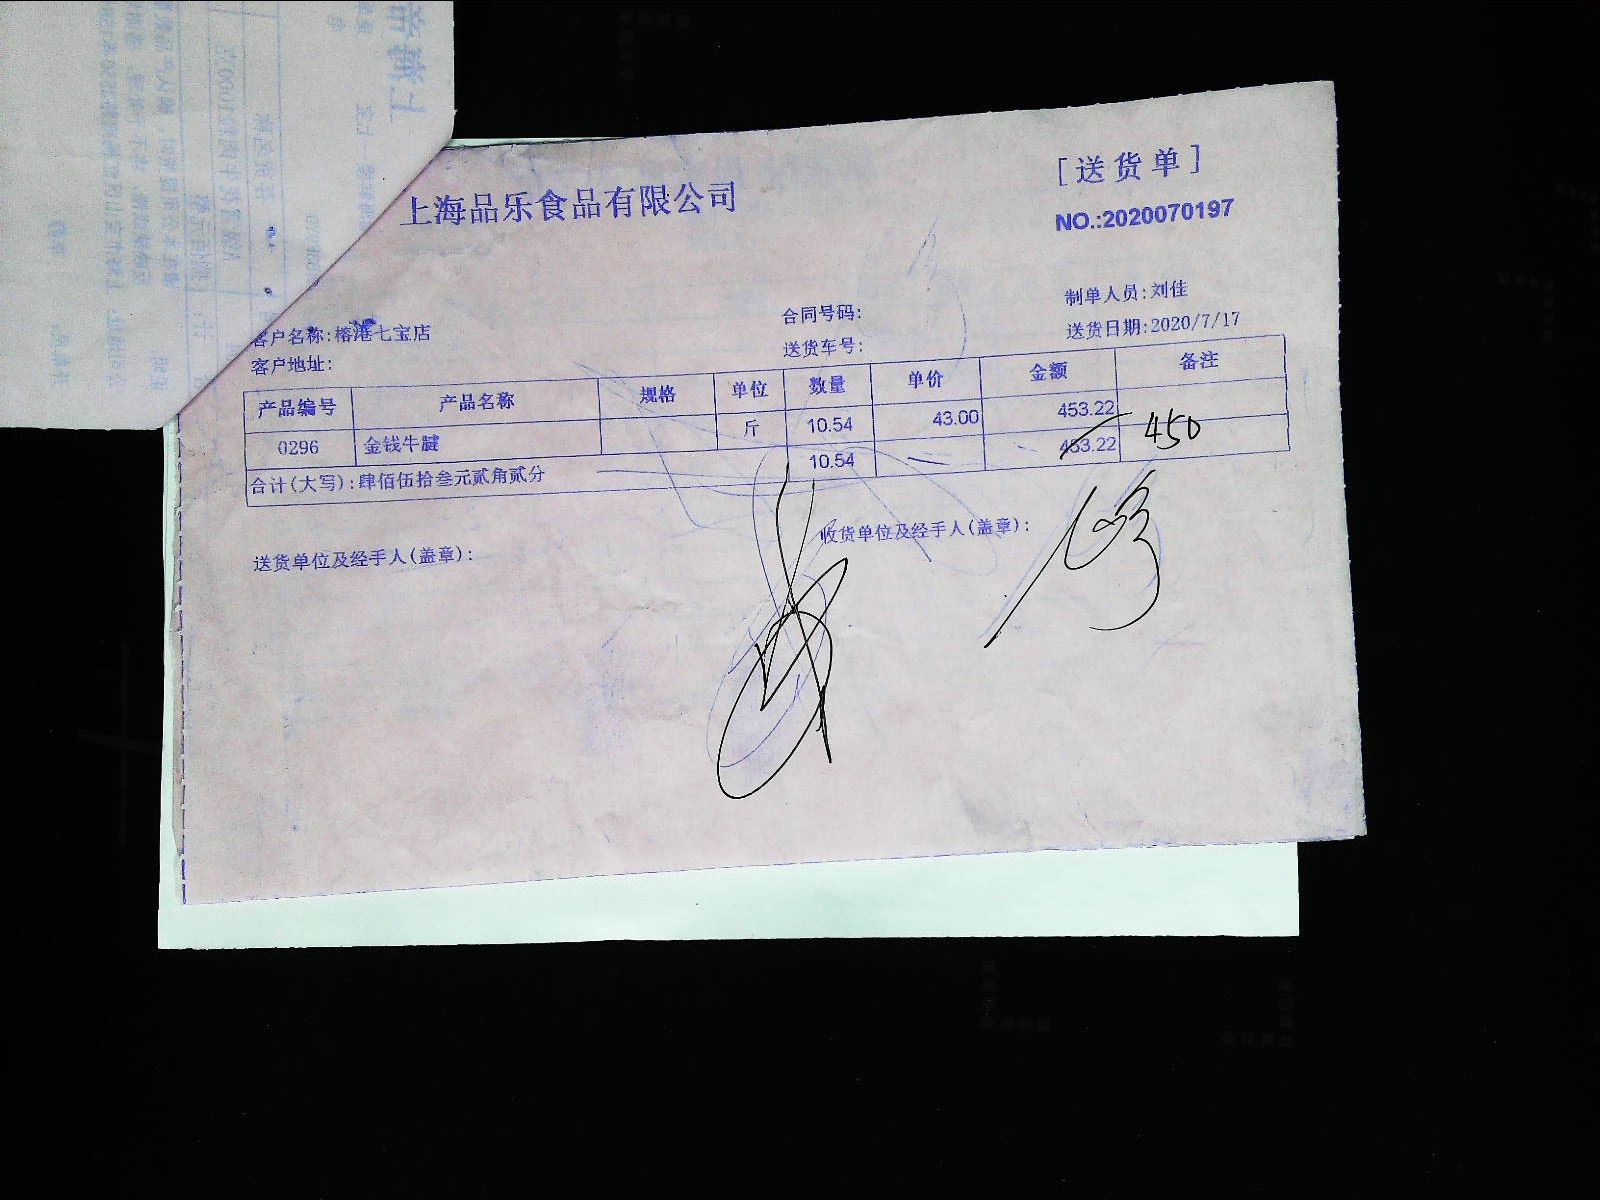 上海品乐食品有限公司
[送货单]
NO.:2020070197
客户名称:榕港七宝店
合同号码:
制单人员:刘佳
客户地址:
送货车号:
送货日期:2020/7/17
产品编号 产品名称 规格 单位 数量 单价 金额 备注
0296 金钱牛腱 斤 10.54 43.00 453.22
合计(大写):肆佰伍拾叁元贰角贰分 10.54 — 453.22 450
送货单位及经手人(盖章):
收货单位及经手人(盖章):